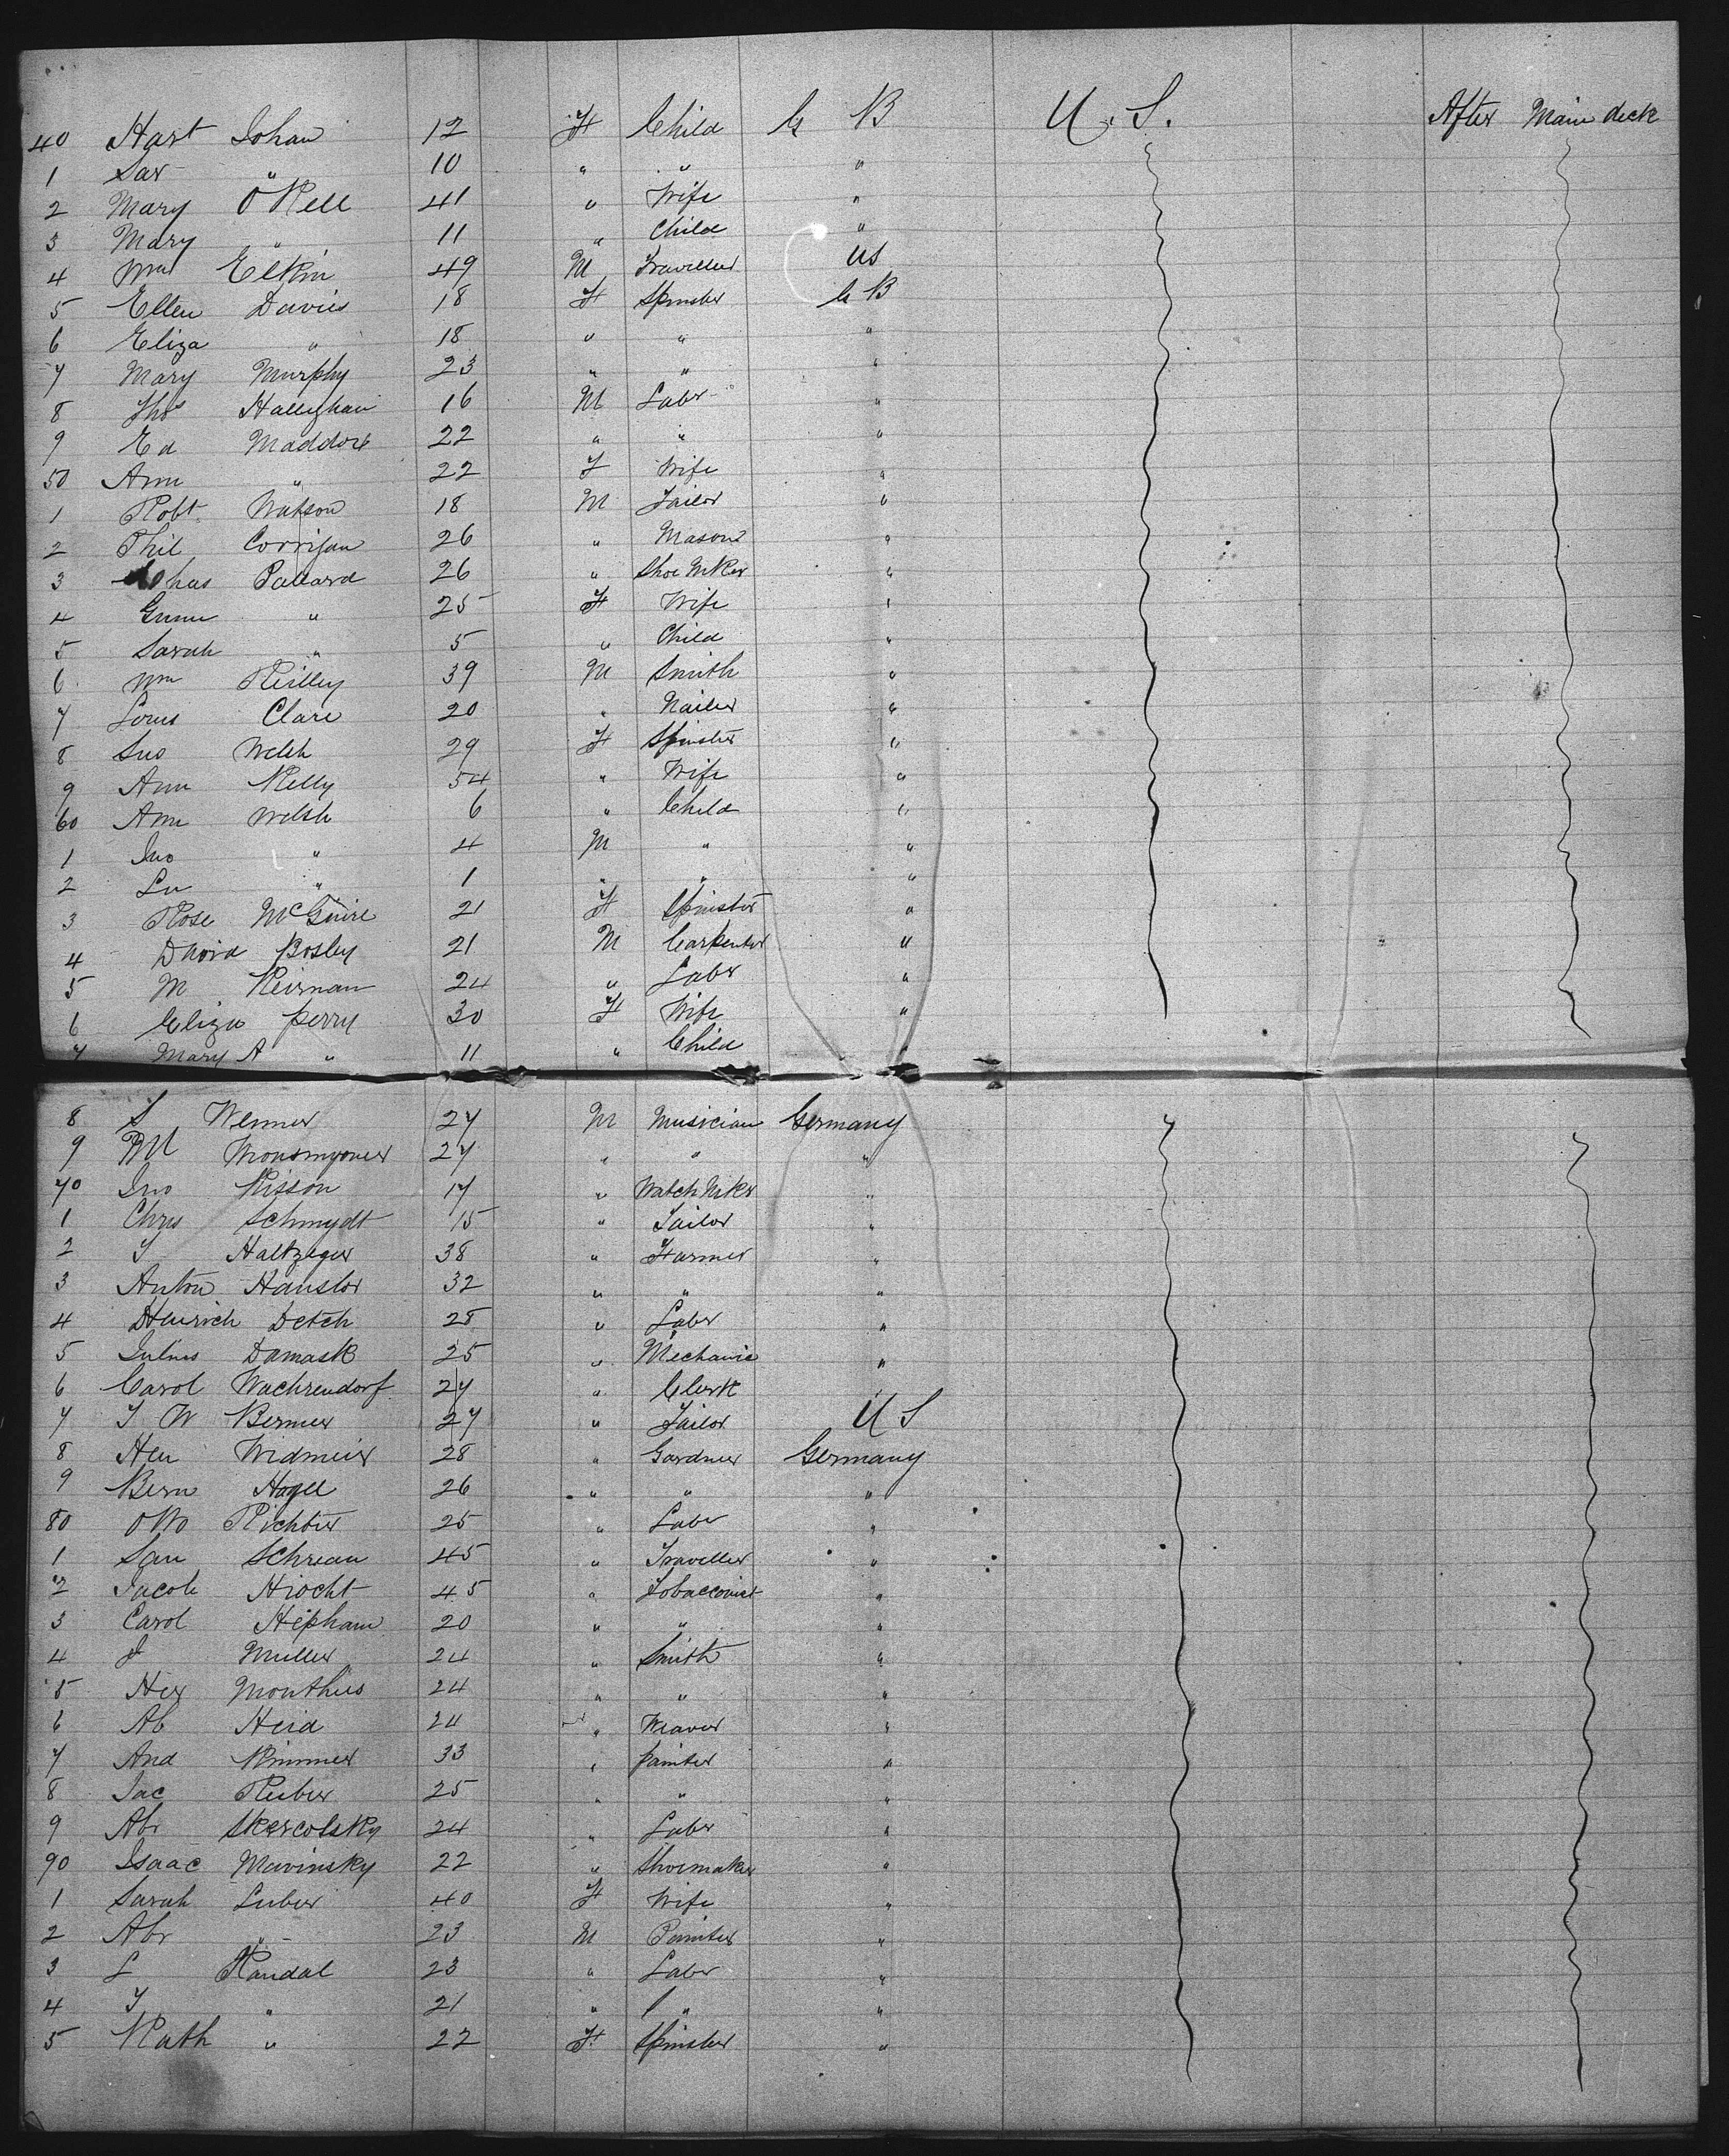 40 Hart Johan 12 F Child G B U.S. After Main deck
1 Sar " 10 " " "
2 Mary O Kell 41 " Wife "
3 Mary " 11 " Child "
4 Wm Elkin 49 M Traveller US
5 Ellen Davies 18 F Spinster G B
6 Eliza " 18 " " "
7 Mary Murphy 23 " " "
8 Thos Halleghan 16 M Labr "
9 Ed Maddox 22 " " "
50 Ann " 22 F Wife "
1 Robt Watson 18 M Tailor "
2 Phil Corrigan 26 " Mason "
3 Chas Pallard 26 " Shoe Mker "
4 " 25 F Wife "
5 Sarah " 5 " Child "
6 Wm Reilley 39 M Smith "
7 Louis Clare 20 " Nailer "
8 Welsh 29 F Spinster "
9 Ann Kelly 54 " Wife "
60 Ann Welsh 6 " Child "
1 Jno " 4 M " "
2 " 1 " " "
3 Rose McGuire 21 F Spinster "
4 David Bosley 21 M Carpenter "
5 M Keirnan 24 " Labr "
6 Eliza Perry 30 F Wife "
7 Mary A " 11 " Child "
8 S Wenner 27 M Musician Germany
9 27 " " "
70 Jno Kisson 17 " Watch Mkr "
1 Chrs Schmydt 15 " Tailor "
2 J Haltzeger 38 " Farmer "
3 Anton Hanslor 32 " " "
4 Heinrich Detch 28 " Labr "
5 Julius Damask 25 " Mechanic "
6 Carol Wachrendorf 27 " Clerk "
7 J W Berner 27 " Tailor U S
8 Hen Widmeir 28 " Gardner Germany
9 Bern Hagel 26 " " "
80 Otto Richter 25 " Labr "
1 Schrean 45 " Traveller "
2 Jacob Hiocht 45 " Tobacconist "
3 Carol Hepham 20 " " "
4 J Muller 24 " Smith "
5 Her Monthies 24 " " "
6 Ab Heid 24 " Weaver "
7 And Kimmer 33 " Painter "
8 Jac Reuber 25 " " "
9 Abr Skercolsky 24 " Labr "
90 Isaac Mavinsky 22 " Shoemaker "
1 Sarah Luber 40 F Wife "
2 Abr " 23 M Painter "
3 L Kandal 23 " Labr "
4 J " 21 " " "
5 Kath " 22 F Spinster "